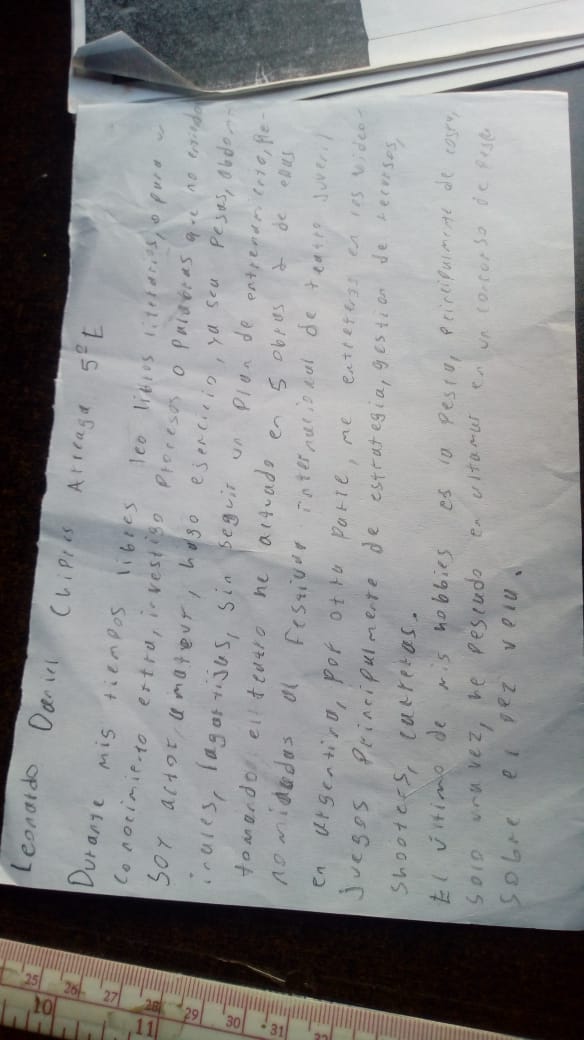 Leonardo Daniel Chipres Arreaga 5º E
Durante mis tiempos libres leo libros literarios, o para un
conocimiento extra, investigo procesos o palabras que no entiendo
Soy actor, amateur, hago ejercicio, ya sea pesas, abdom-
inales, lagartijas, sin seguir un plan de entrenamiento, Re-
tomando el teatro he actuado en 5 obras 2 de ellas
nominadas al Festival internacional de teatro juvenil
en argentina, por otra parte, me entretengo en los video-
juegos principalmente de estrategia, gestion de recursos,
shooters, carreras.
El ultimo de mis hobbies es la pesca, principalmente de costa,
solo una vez, he pescado en ultamar en un concurso de pesca
sobre el pez vela.
25 26 27 28 29 30 31 32
10 11